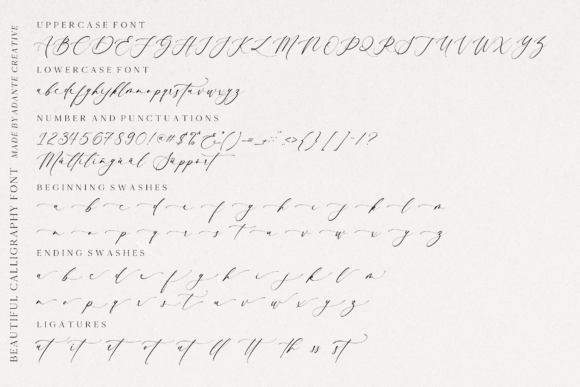 UPPERCASE FONT
A B C D E F G H I J K L M N O P Q R S T U V W X Y Z
LOWERCASE FONT
a b c d e f g h i j k l m n o p q r s t u v w x y z
NUMBER AND PUNCTUATIONS
1 2 3 4 5 6 7 8 9 0 ! @ # $ % & ( ) - = _ : <> { } [ ] - / ?
Multilingual Support
BEGINNING SWASHES
a b c d e f g h i j k l m
n o p q r s t u v w x y z
ENDING SWASHES
a b c d e f g h i j k l m
n o p q r s t u v w x y z
LIGATURES
at it et ot ut ll tt th ss st
BEAUTIFUL CALLIGRAPHY FONT MADE BY ADANTE CREATIVE